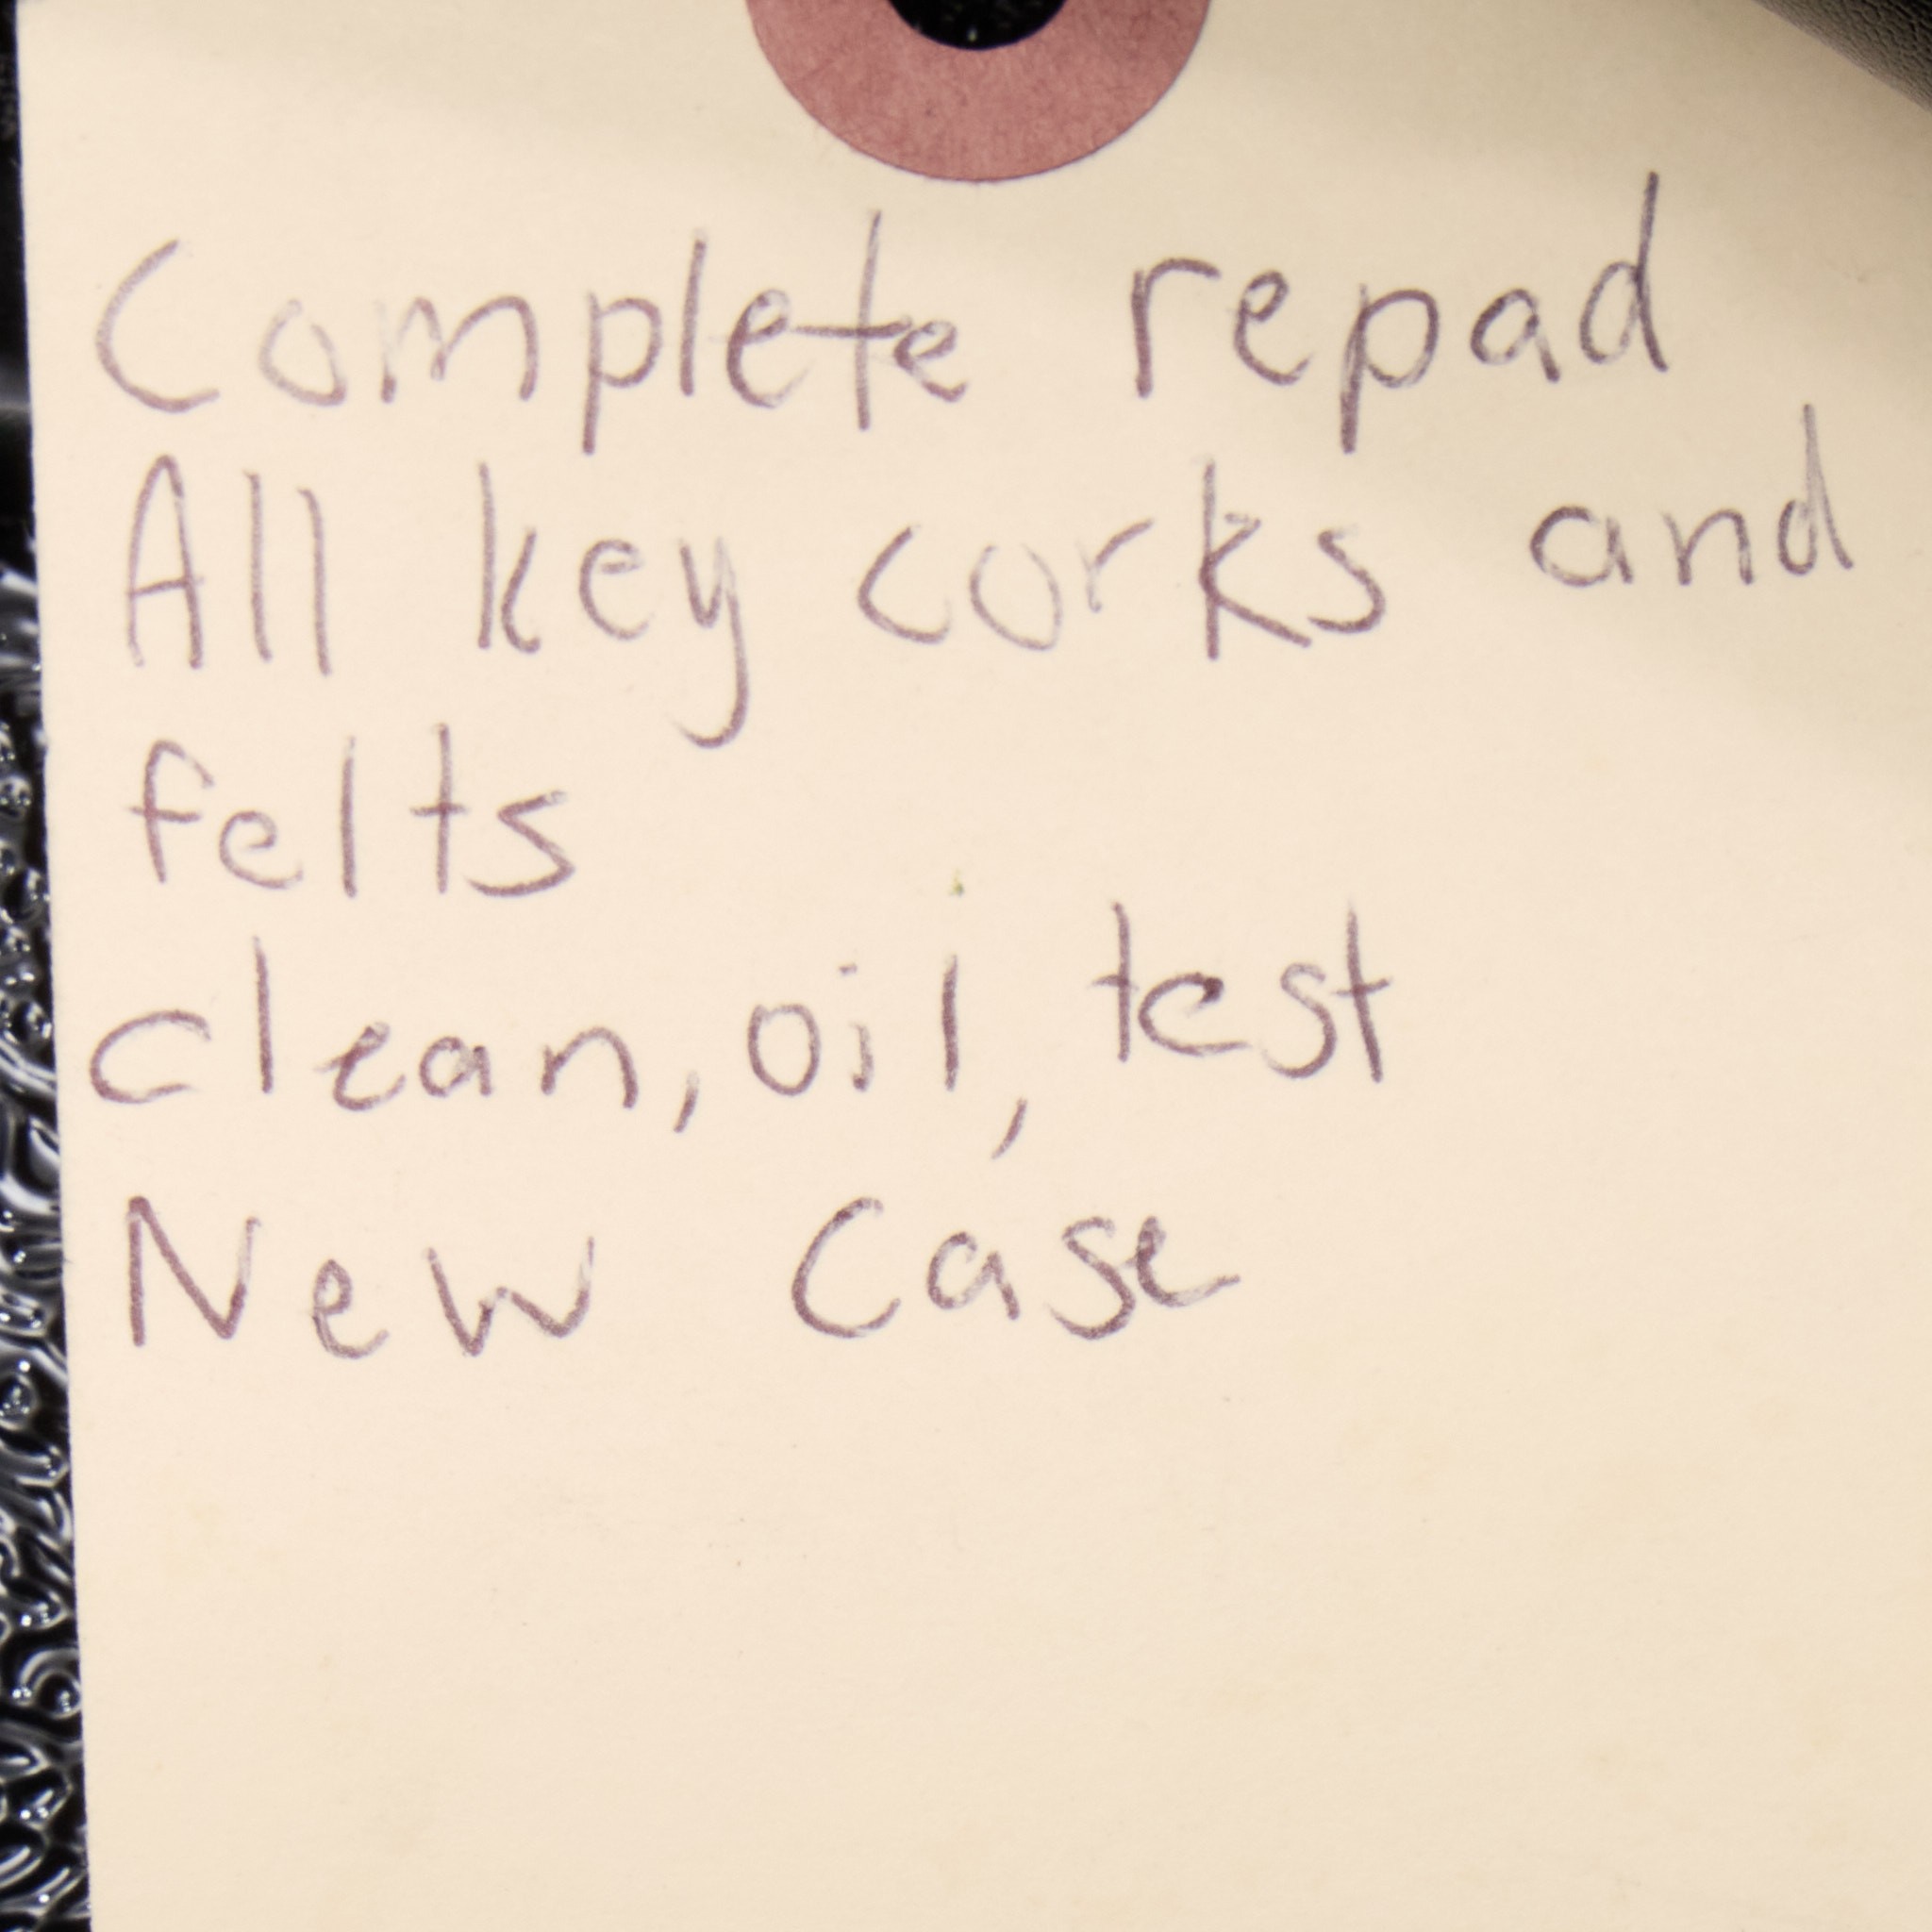 Complete repad
All key corks and
felts
clean, oil, test
New Case